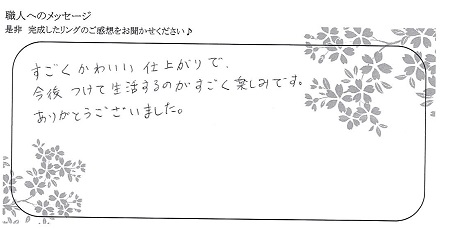 職人へのメッセージ
是非 完成したリングのご感想をお聞かせください♪
すごくかわいい仕上がりで、
今後つけて生活するのがすごく楽しみです。
ありがとうございました。